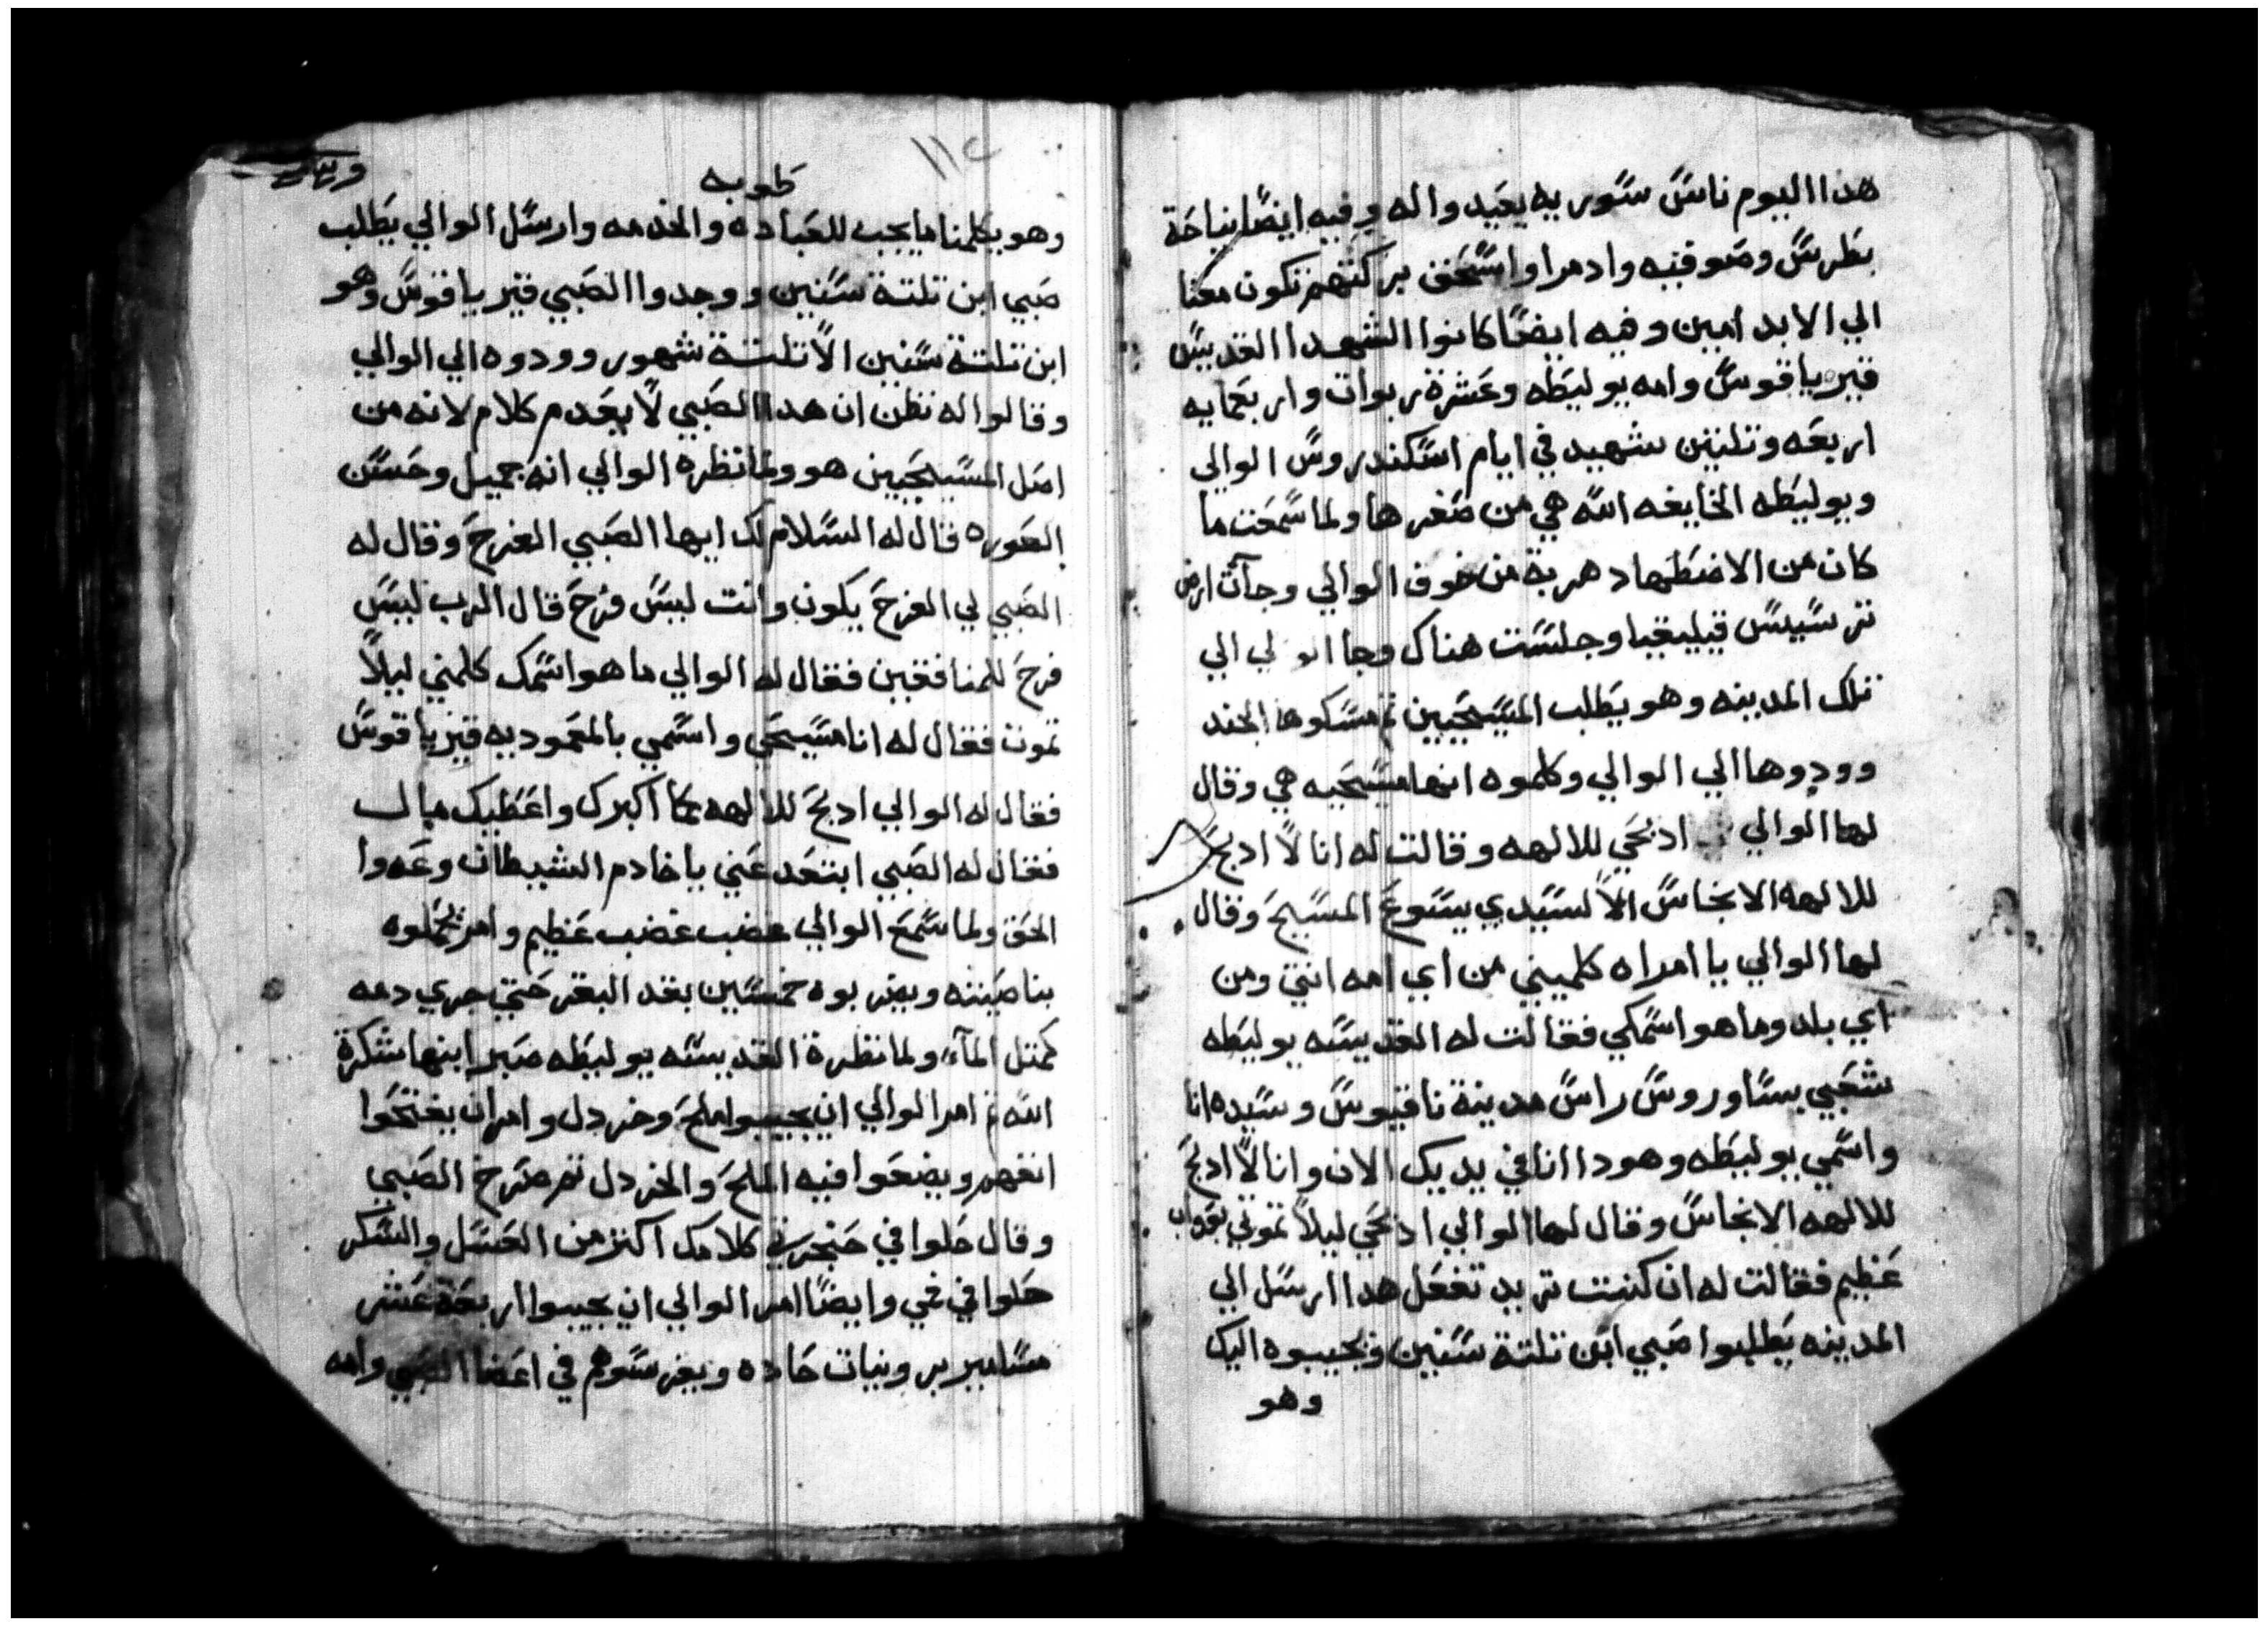 هدا اليوم ناس سوريه يعيدوا له وفيه ايضا نياحة
بطرس وصوفيه وادمرا واسحق بركتهم تكون معنا
الي الابد امين وفيه ايضا كانوا الشهدا القديس
قيرياقوس وامه يوليطه وعشرة ربوات واربعمايه
اربعه وتلتين شهيد في ايام اسكندروس الوالي
ويوليطه الخايفه الله هي من صغرها ولما سمعت ما
كان من الاضطهاد هربة من خوف الوالي وجآت ارض
ترسيس قيليقيا وجلست هناك وجا الوالي الي
تلك المدينه وهو يطلب المسيحيين تم مسكوها الجند
وودوها الي الوالي وكلموه انها مسيحيه هي وقال
لها الوالي ادبحي للالهه وقالت له انا لا ادبح
للالهه الانجاس الا لسيدي يسوع المسيح وقال
لها الوالي يا امراه كلميني من اي امه انتي ومن
اي بلد وما هو اسمكي فقالت له القديسه يوليطه
شعبي بساوروس راس مدينة نافيوس وسيده انا
واسمي يوليطه وهودا انا في يديك الان وانا لا ادبح
للالهه الانجاس وقال لها الوالي ادبحي ليلا تموتي بعداب
عظيم فقالت له ان كنت تريد تفعل هدا ارسل الي
المدينه يطلبوا صبي ابن تلتة سنين ويجيبوه اليك
وهو
١١٤
طوبه
وهو يكلمنا ما يجب للعباده والخدمه وارسل الوالي يطلب
صبي ابن تلتة سنين ووجدوا الصبي قيرياقوس وهو
ابن تلتة سنين الا تلتة شهور وودوه الي الوالي
وقالوا له نظن ان هدا الصبي لا يعدم كلام لانه من
اصل المسيحيين هو ولما نظره الوالي انه جميل وحسن
الصوره قال له السلام لك ايها الصبي الفرح وقال له
الصبي لي الفرح يكون وانت ليس فرح قال الرب ليس
فرح للمنافقين فقال له الوالي ما هو اسمك كلمني ليلا
تموت فقال له انا مسيحي واسمي بالمعموديه قيرياقوس
فقال له الوالي ادبح للالهه كما اكبرك واعطيك مال
فقال له الصبي ابتعد عني يا خادم الشيطان وعدوا
الحق ولما سمع الوالي غضب غضب عظيم وامر يحملوه
بناصيته ويضربوه خمسين بقد البقر حتي جري دمه
كمتل المآء ولما نظرة القديسه يوليطه صبر ابنها شكرة
الله تم امر الوالي ان يجيبوا ملح وخردل وامر ان يفتحوا
انفهم ويضعوا فيه الملح والخردل تم صرخ الصبي
وقال حلوا في حنجرتي كلامك اكتر من العسل والسكر
حلوا في فمي وايضا امر الوالي ان يجيبوا اربعة عشر
مسامير بروينات حاده ويغرسوهم في اعضا الصبي وامه